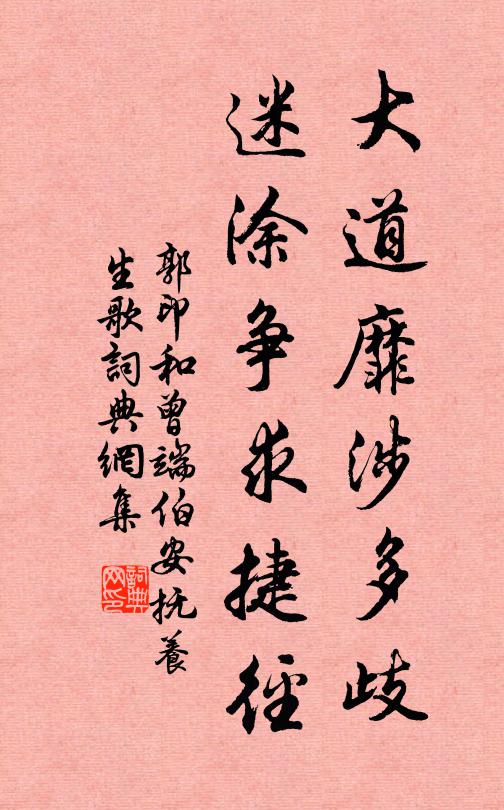 大道靡涉多歧
迷涂争求捷徑
郭印和曾端伯安抚養
生歌詞典網集
詞典
网印